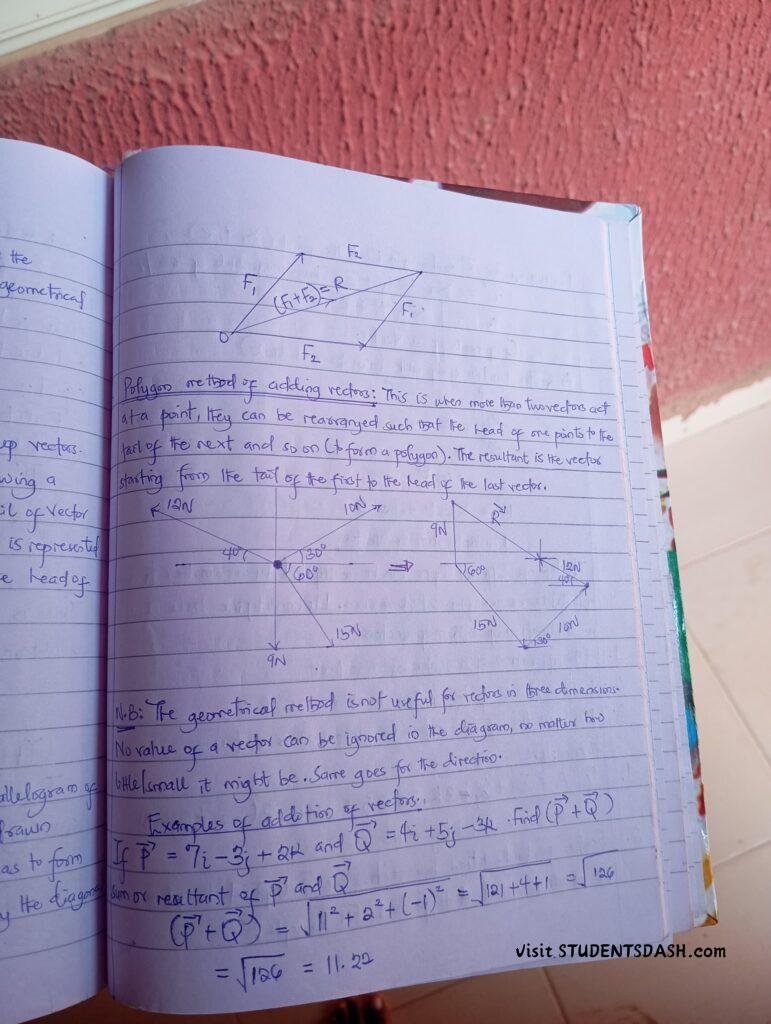 the
geometrical
up vectors.
wing a
il of vector
is represented
e head of
allelogram of
drawn
as to form
y the diagonal
F2
F1
(F1+F2)=R
F1
O
F2
Polygon method of adding vectors: This is when more than two vectors act
at a point, they can be rearranged such that the head of one points to the
tail of the next and so on (to form a polygon). The resultant is the vector
starting from the tail of the first to the head of the last vector.
12N
10N
40°
30°
60°
15N
9N
⇒
R
9N
60°
12N
40°
15N
10N
30°
N.B: The geometrical method is not useful for vectors in three dimensions.
No value of a vector can be ignored in the diagram, no matter how
little/small it might be. Same goes for the direction.
Examples of addition of vectors:
If P⃗ = 7i - 3j + 2k and Q⃗ = 4i + 5j - 3k. Find (P⃗ + Q⃗)
Sum or resultant of P⃗ and Q⃗
(P⃗ + Q⃗) = √11² + 2² + (-1)² = √121 + 4 + 1 = √126
= √126 = 11.22
Visit STUDENTSDASH.com